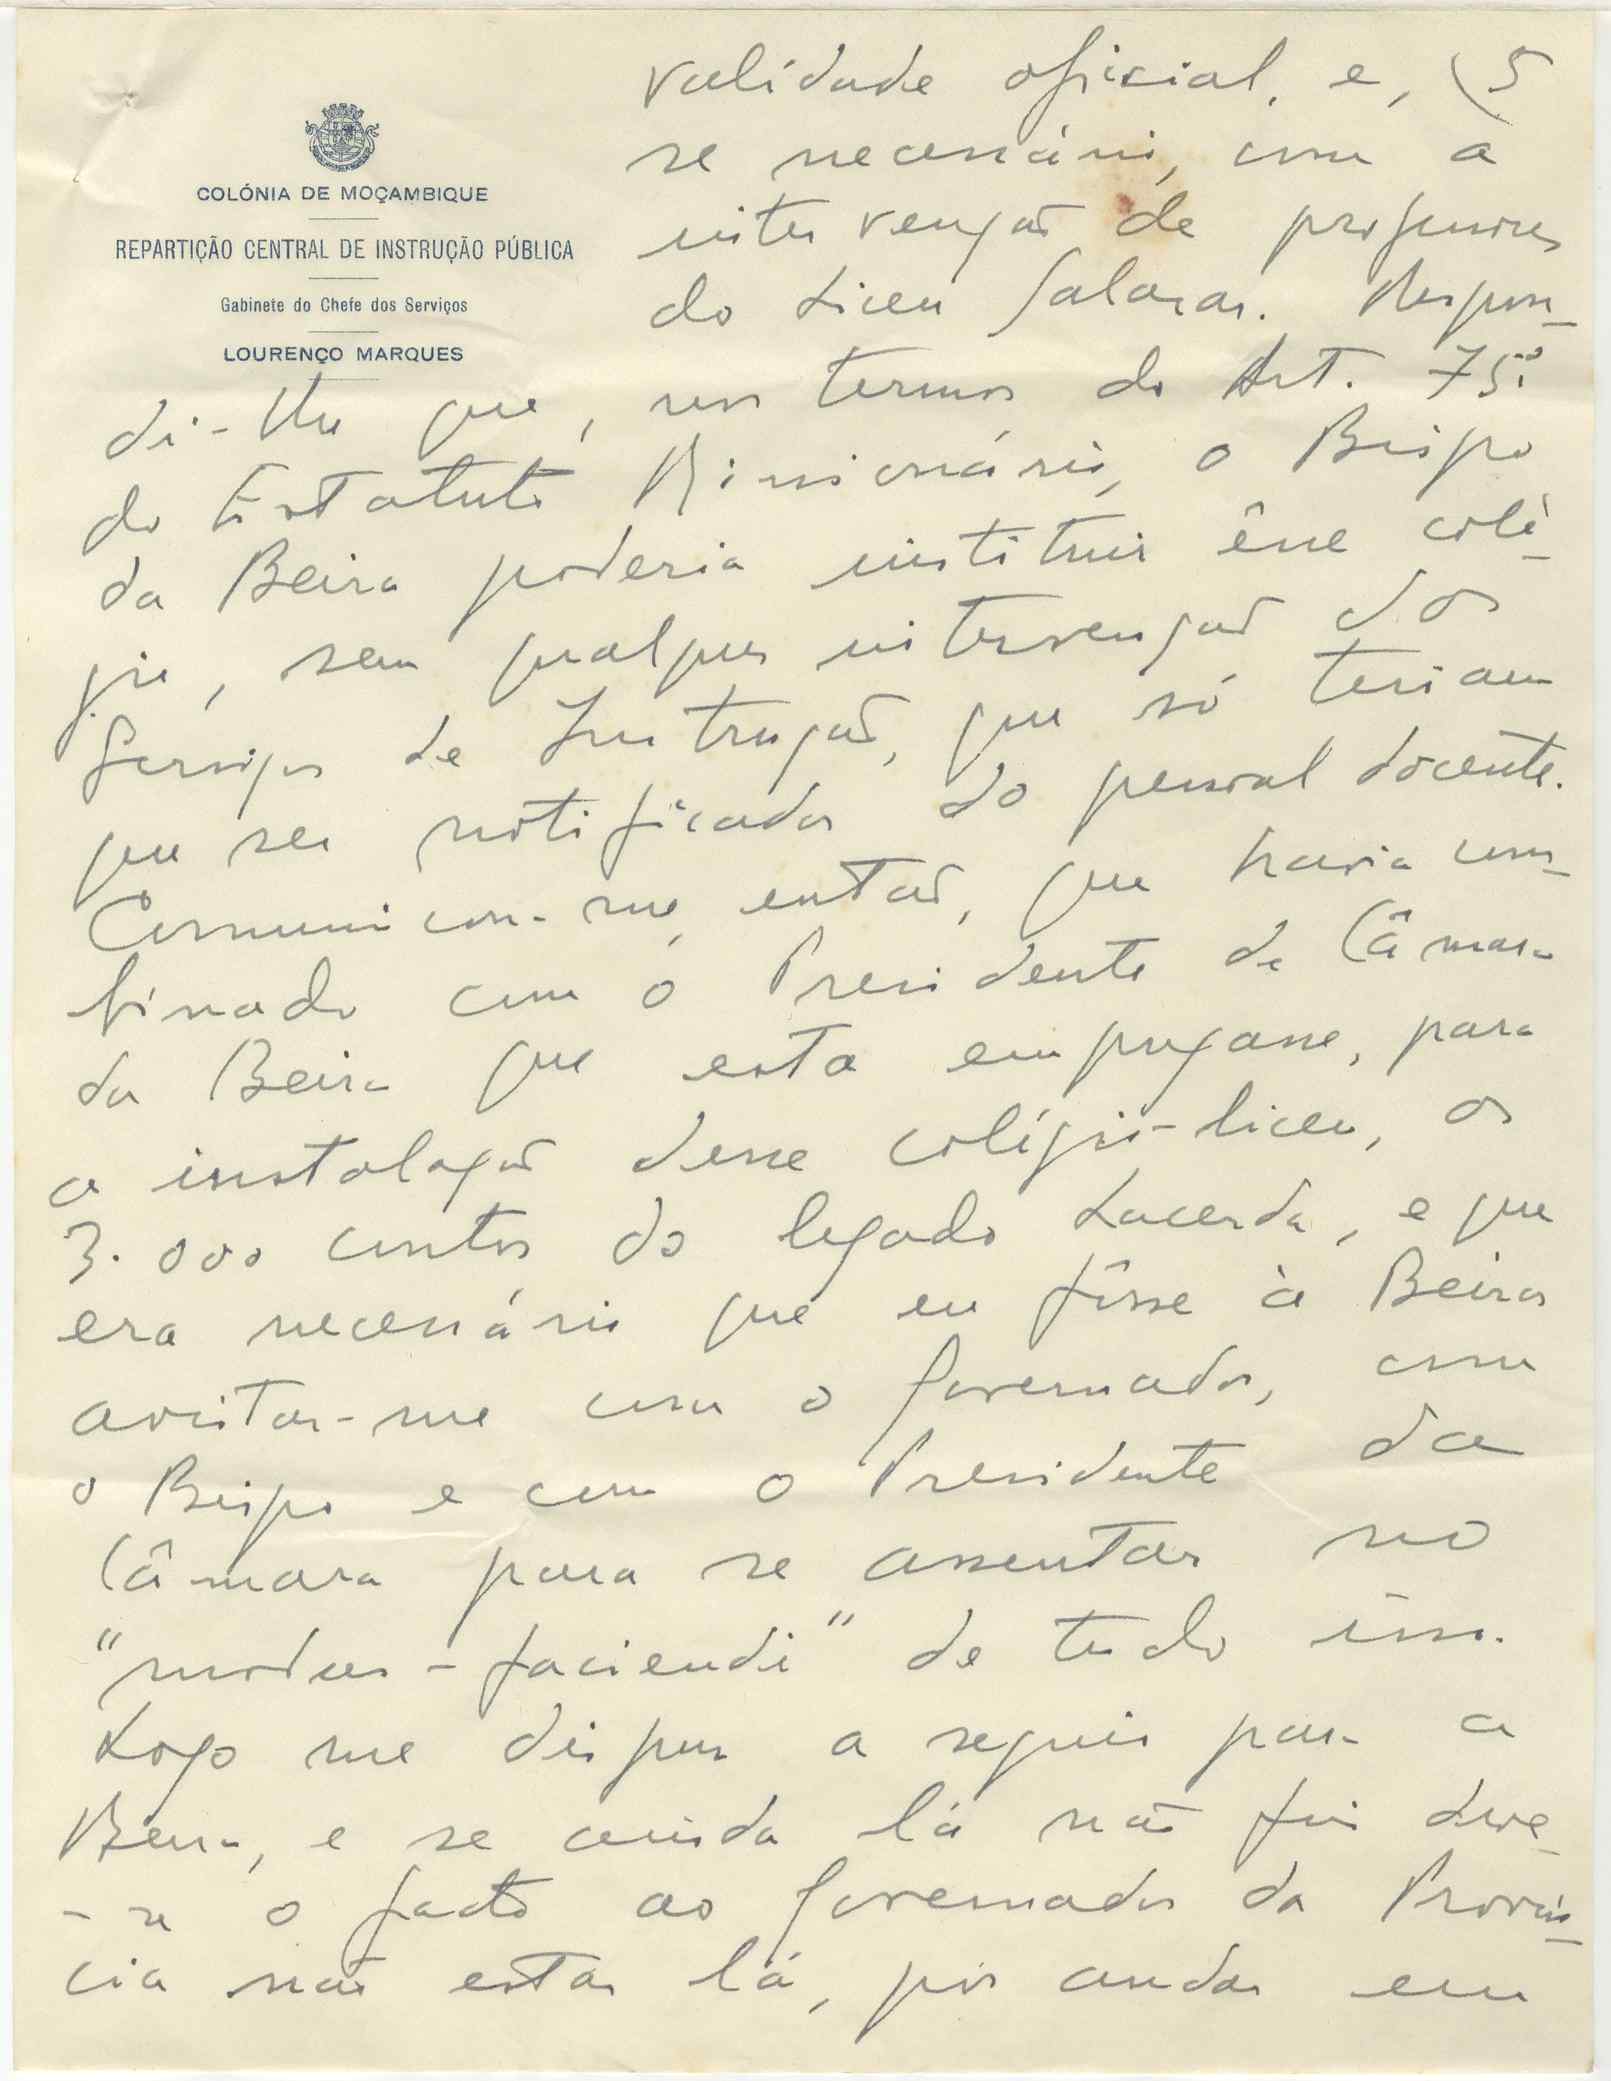 COLÓNIA DE MOÇAMBIQUE
REPARTIÇÃO CENTRAL DE INSTRUÇÃO PÚBLICA
Gabinete do Chefe dos Serviços
LOURENÇO MARQUES
(5
validade oficial, e,
se necessário, com a
intervenção de professores
do Liceu Salazar. Respon-
di-lhe que, nos termos do Art. 75.º
do Estatuto Missionário, o Bispo
da Beira poderia instituir êsse colé-
gio, sem qualquer intervenção dos
Serviços de Instrução, que só teriam
que ser notificados do pessoal docente.
Comunicou-me, então, que havia com-
binado com o Presidente da Câmara
da Beira que esta empregasse, para
a instalação desse colégio-liceu, os
3.000 contos do legado Lacerda, e que
era necessário que eu fôsse à Beira
avistar-me com o Governador, com
o Bispo e com o Presidente da
Câmara para se assentar no
"modus-faciendi" de tudo isso.
Logo me dispus a seguir para a
Beira, e se ainda lá não fui deve-
-se o facto ao Governador da Provín-
cia não estar lá, por andar em